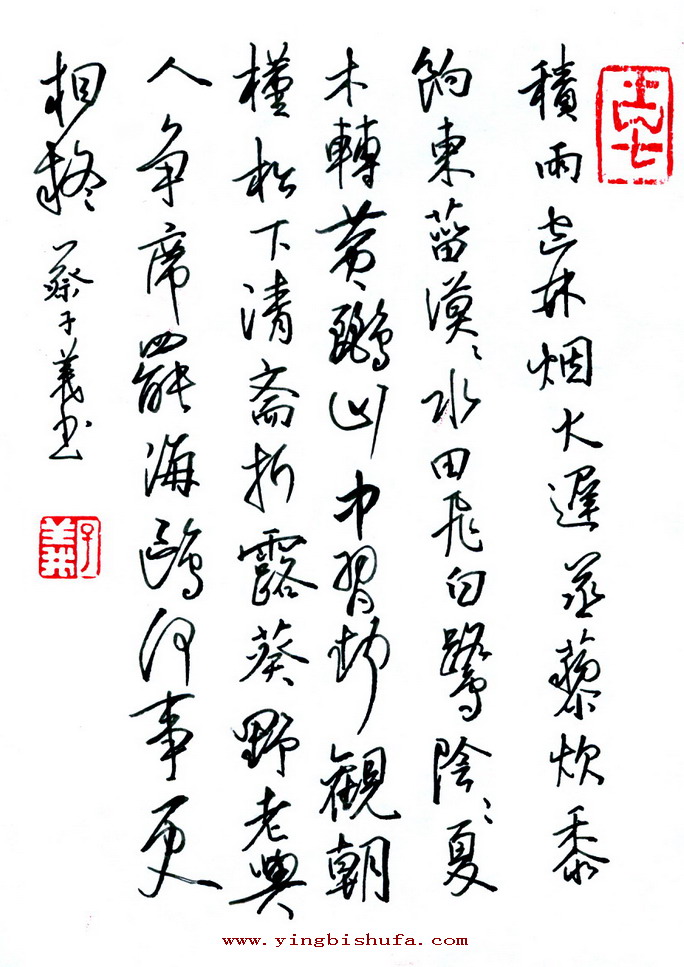 積雨空林烟火遲蒸藜炊黍
餉東菑漠〻水田飛白鷺陰〻夏
木轉黄鸝山中習静觀朝
槿松下清斋折露葵野老與
人争席罷海鷗何事更
相疑 蔡子義书
子義
www.yingbishufa.com